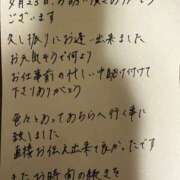 9月25日、お
ございます
久し振りにお逢い出来ました
お元気そうで何より
お仕事前の忙しい中駆け付けて
下さりありがとう
急だとあって
あちらへ行く事に
致しました
直接お伝え出来て良かったです
またお時間の